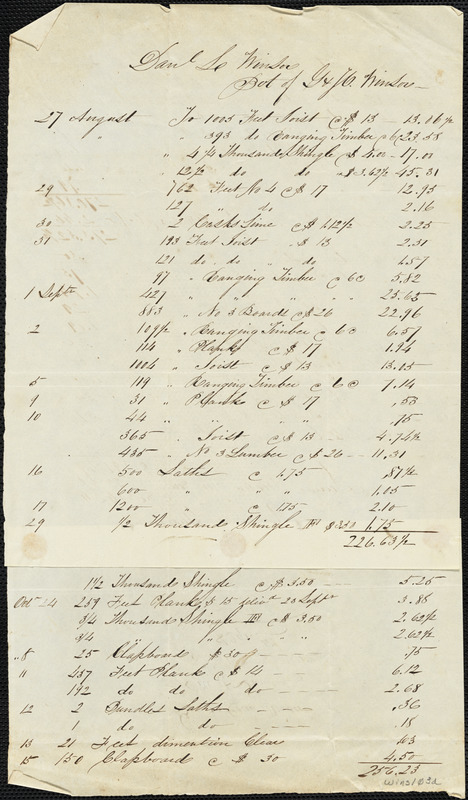 Danl L Winsor
Bot of G & H. Winsor
27 August To 1005 Feet Joist @ $ 13 - 13.06½
" " " 393 do Ranging Timber @ 6c 23.58
" 4¼ Thousand Shingle $ 4.00 - 17.00
" 12½ do do " $ 3.62½ 45.31
29 762 Feet No 4 @ $ 17 12.95
127 " do 2.16
30 2 Casks Lime @ $ 1.12½ 2.25
31 193 Feet Joist " $ 13 2.51
121 do do " do 1.57
97 " Ranging Timber @ 6c 5.82
1 Septr 427 " " " " 25.65
883 " No 3 Boards @ $ 26 22.96
2 109½ " Ranging Timber @ 6c 6.57
114 " Plank @ $ 17 1.94
1004 " Joist @ $ 13 13.05
5 119 " Ranging Timber @ 6c 7.14
9 31 " Plank @ $ 17 .53
10 44 " " " " .75
365 " Joist @ $ 13 4.74½
435 " No 3 Lumber @ $ 26 11.31
16 500 Laths @ 1.75 .87½
600 " " " 1.05
17 1200 " @ 175 2.10
29 ½ Thousand Shingle $ 3.50 1.75
226.63½
1½ Thousand Shingle @ $ 3.50 5.25
Octr 259 Feet Plank $ 15 20 Septr 3.88
¾ Thousand Shingle @ $ 3.50 2.62½
¾ " " " " 2.62½
" 8 25 Clapboard $ 30 .75
11 437 Feet Plank @ $ 14 6.12
192 do do do 2.68
12 2 Bundles Laths .36
1 do do .18
13 21 Feet dimention Clear 63
15 150 Clapboard @ $ 30 4.50
256.23